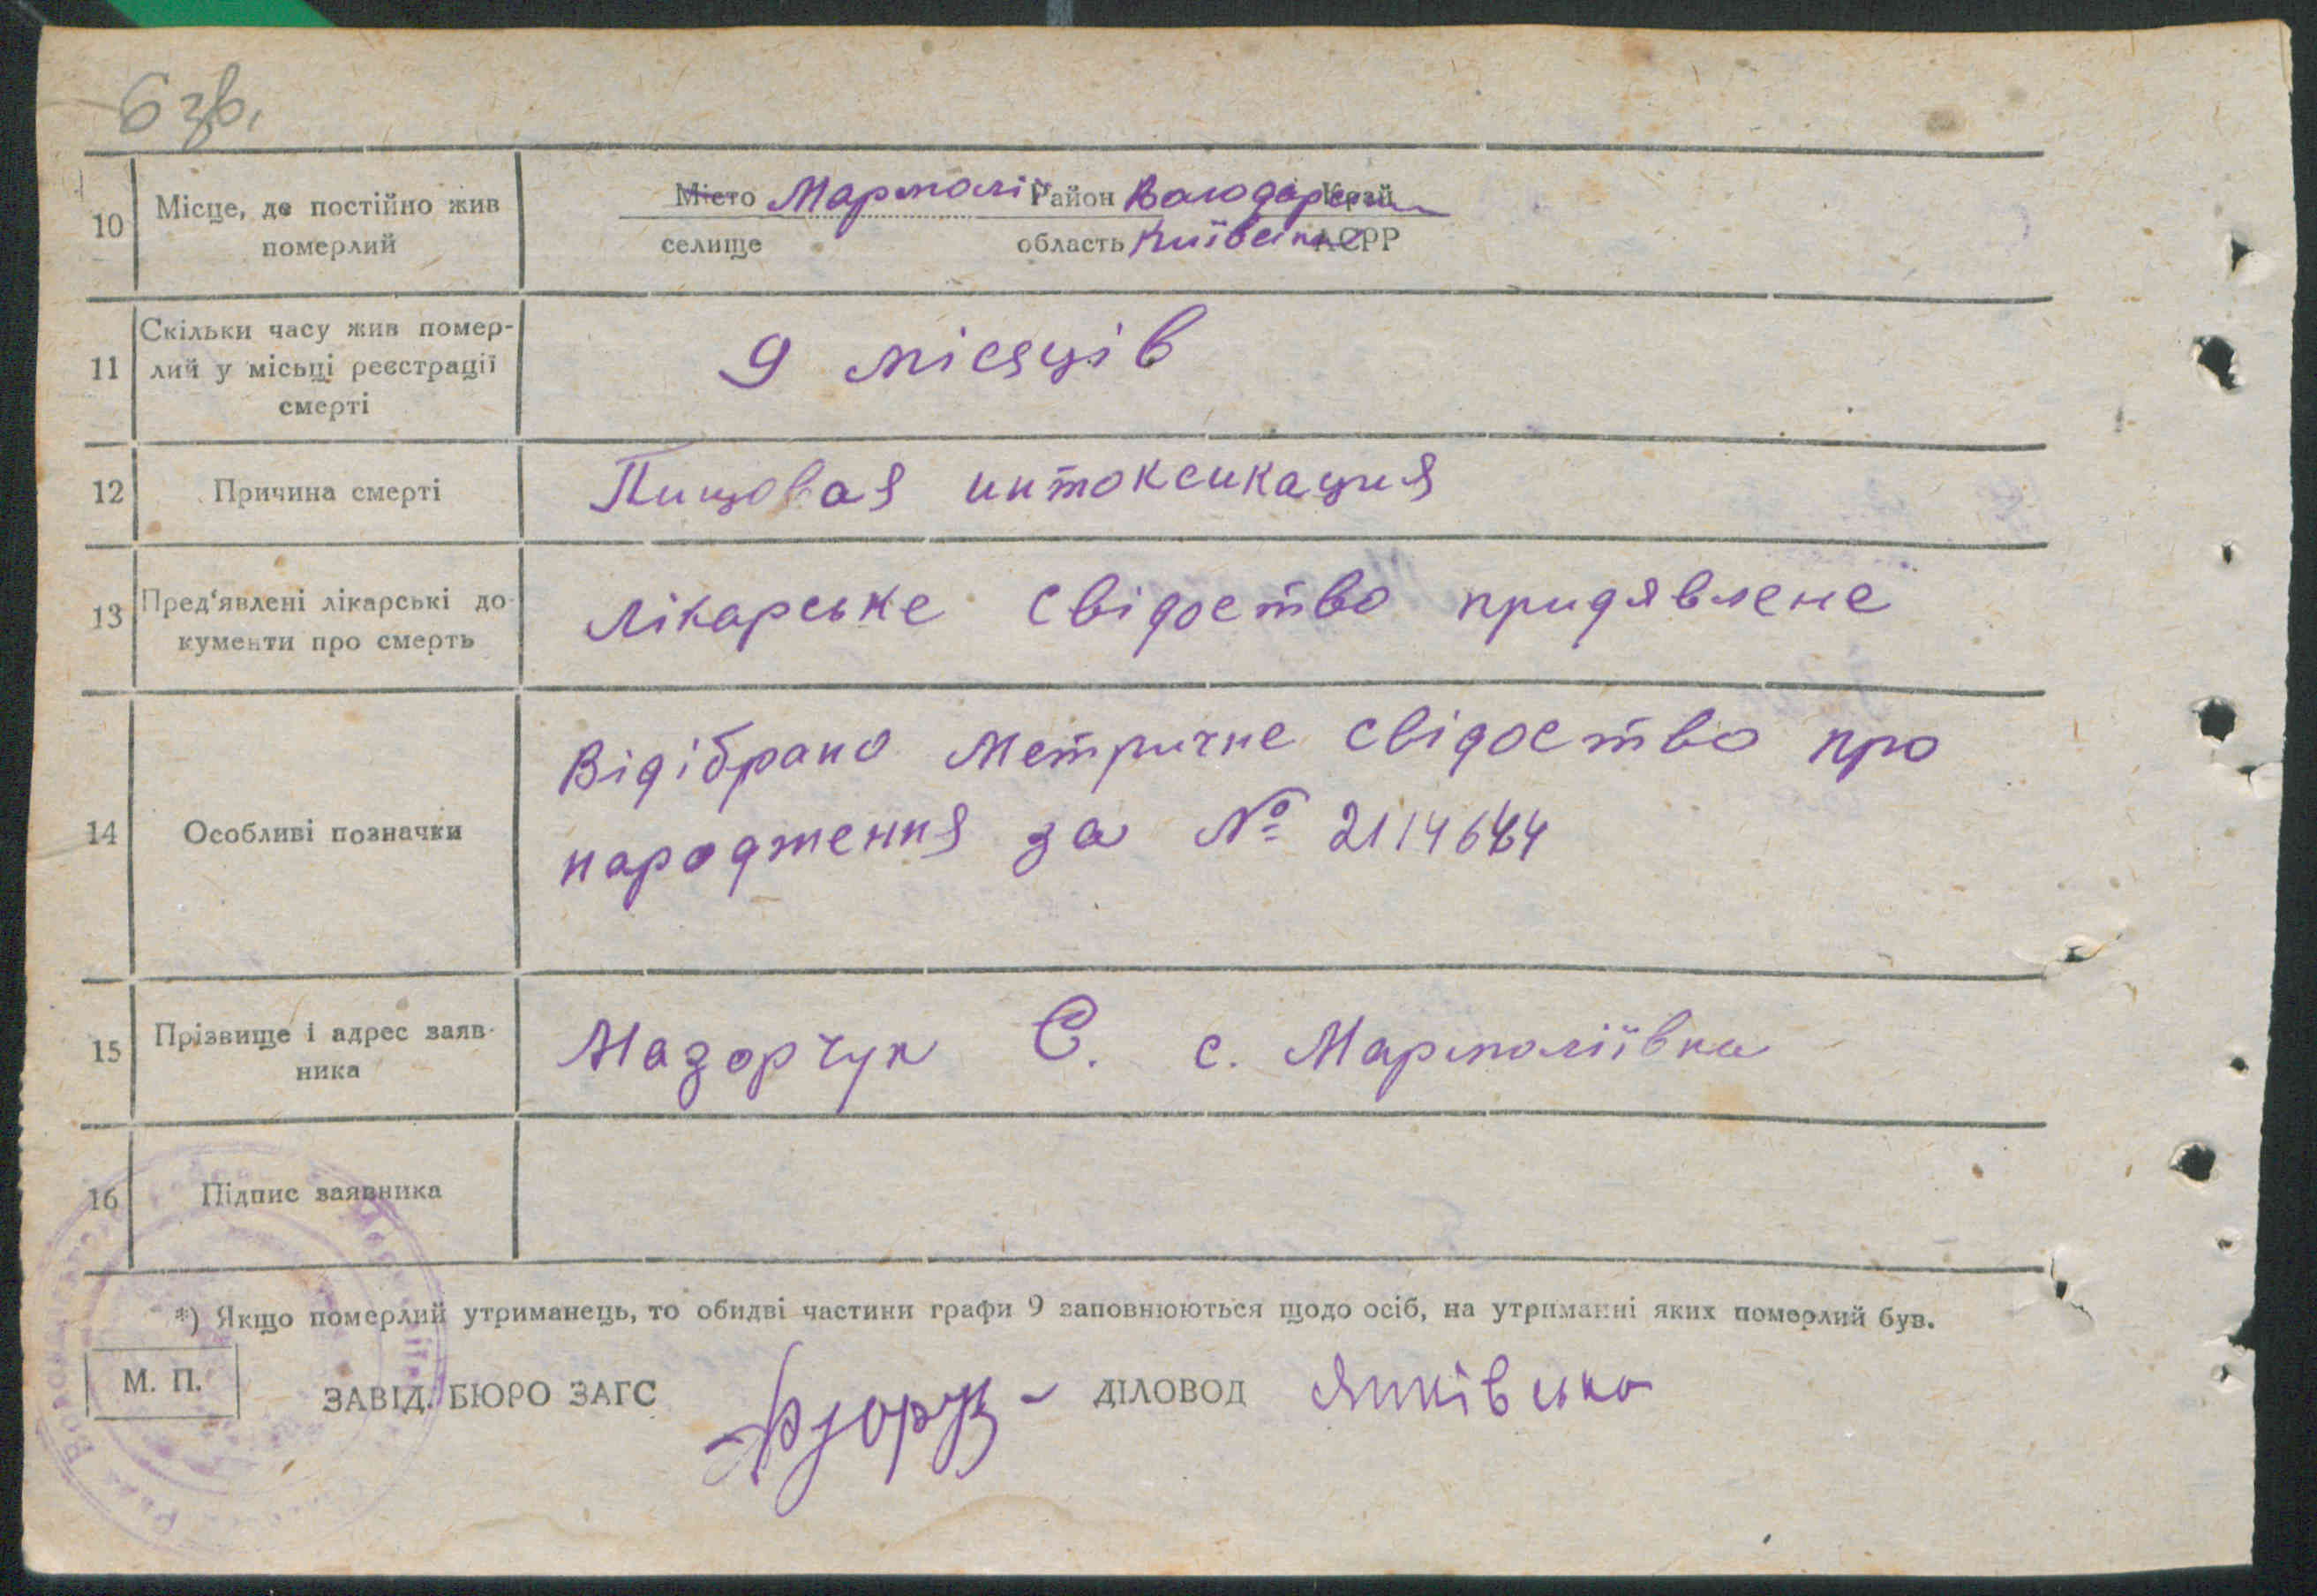 6 зв.
10 Місце, де постійно жив померлий
Місто Мармолії Район Володарськ Край
селище область Київська АСРР
11 Скільки часу жив помер-
лий у місьці реєстрації
смерті
9 місяців
12 Причина смерті
Пищовая интоксикация
13 Пред'явлені лікарські до-
кументи про смерть
лікарське свідоство придявлене
14 Особливі позначки
Відібрано метричне свідоство про
народження за №
15 Прізвище і адрес заяв-
ника
Мазорчук Є. с. Мармоліївка
16 Підпис заявника
*) Якщо померлий утриманець, то обидві частини графи 9 заповнюються щодо осіб, на утриманні яких померлий був.
М. П.
ЗАВІД. БЮРО ЗАГС
ДІЛОВОД